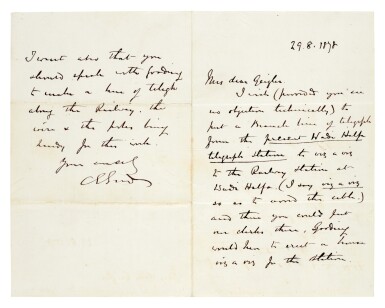 29.8.1878
My dear Geigler
I wish (provided you see
no objection technically) to
put a Branch line of telegraph
from the present Wadi Halfa
telegraph station to vis a vis
to the Railway Station at
Wadi Halfa. (I say vis a vis
so as to avoid the cable.)
and then you could put
one clerk there, Gooding
would have to erect a house
vis a vis for the station.
I want also that you
should speak with Gooding
to make a line of telegh
along the Railway, the
wire & the poles being
ready for the work.
Yours sincerely